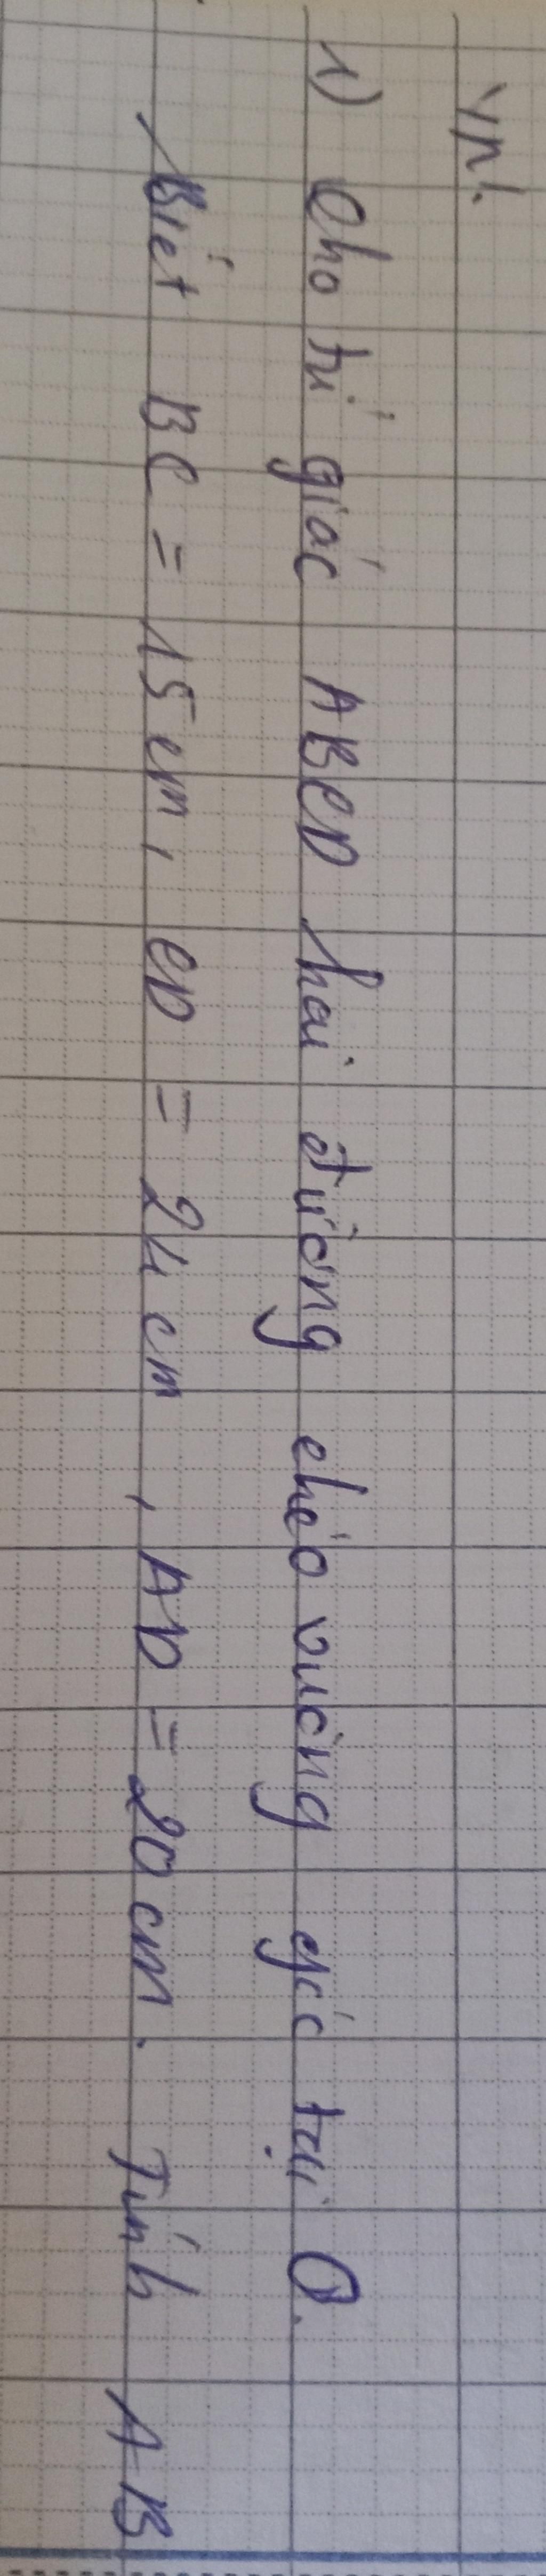 1) Cho tứ giác ABCD hai đường chéo vuông góc tại O.
Biết BC = 15 cm, CD = 24 cm, AD = 20 cm. Tính AB